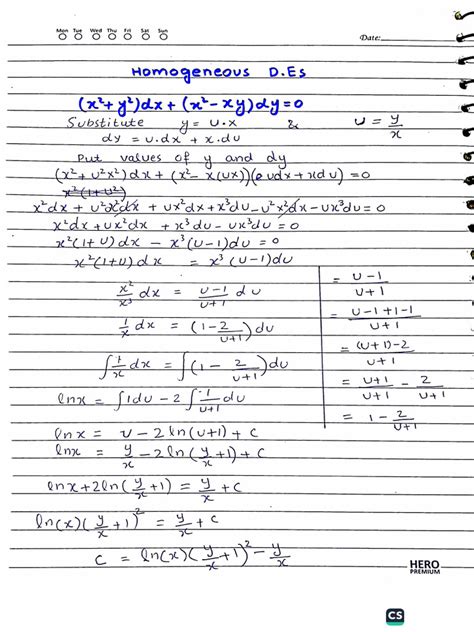 Mon Tue Wed Thu Fri Sat Sun
Date:
Homogeneous D.Es
(x²+y²)dx+(x²-xy)dy=0
Substitute y = u.x & u = y/x
dy = u.dx + x.du
Put values of y and dy
(x²+u²x²)dx+(x²-x(ux))(udx+xdu)=0
x²(1+u²)
x²dx+u²x²dx+ux²dx+x³du-u²x²dx-ux³du=0
x²dx+ux²dx+x³du-ux³du=0
x²(1+u)dx - x³(u-1)du=0
x²(1+u)dx = x³(u-1)du
x²/x³ dx = u-1/u+1 du
1/x dx = (1-2/u+1)du
∫1/x dx = ∫(1-2/u+1)du
lnx = ∫1du-2∫1/u+1 du
= u-1/u+1
= u-1+1-1/u+1
= (u+1)-2/u+1
= u+1/u+1 - 2/u+1
= 1-2/u+1
lnx = u-2ln(u+1)+c
lnx = y/x-2ln(y/x+1)+c
lnx+2ln(y/x+1)=y/x+c
ln(x)(y/x+1)²=y/x+c
c = ln(x)(y/x+1)²-y/x
HERO
PREMIUM
CS